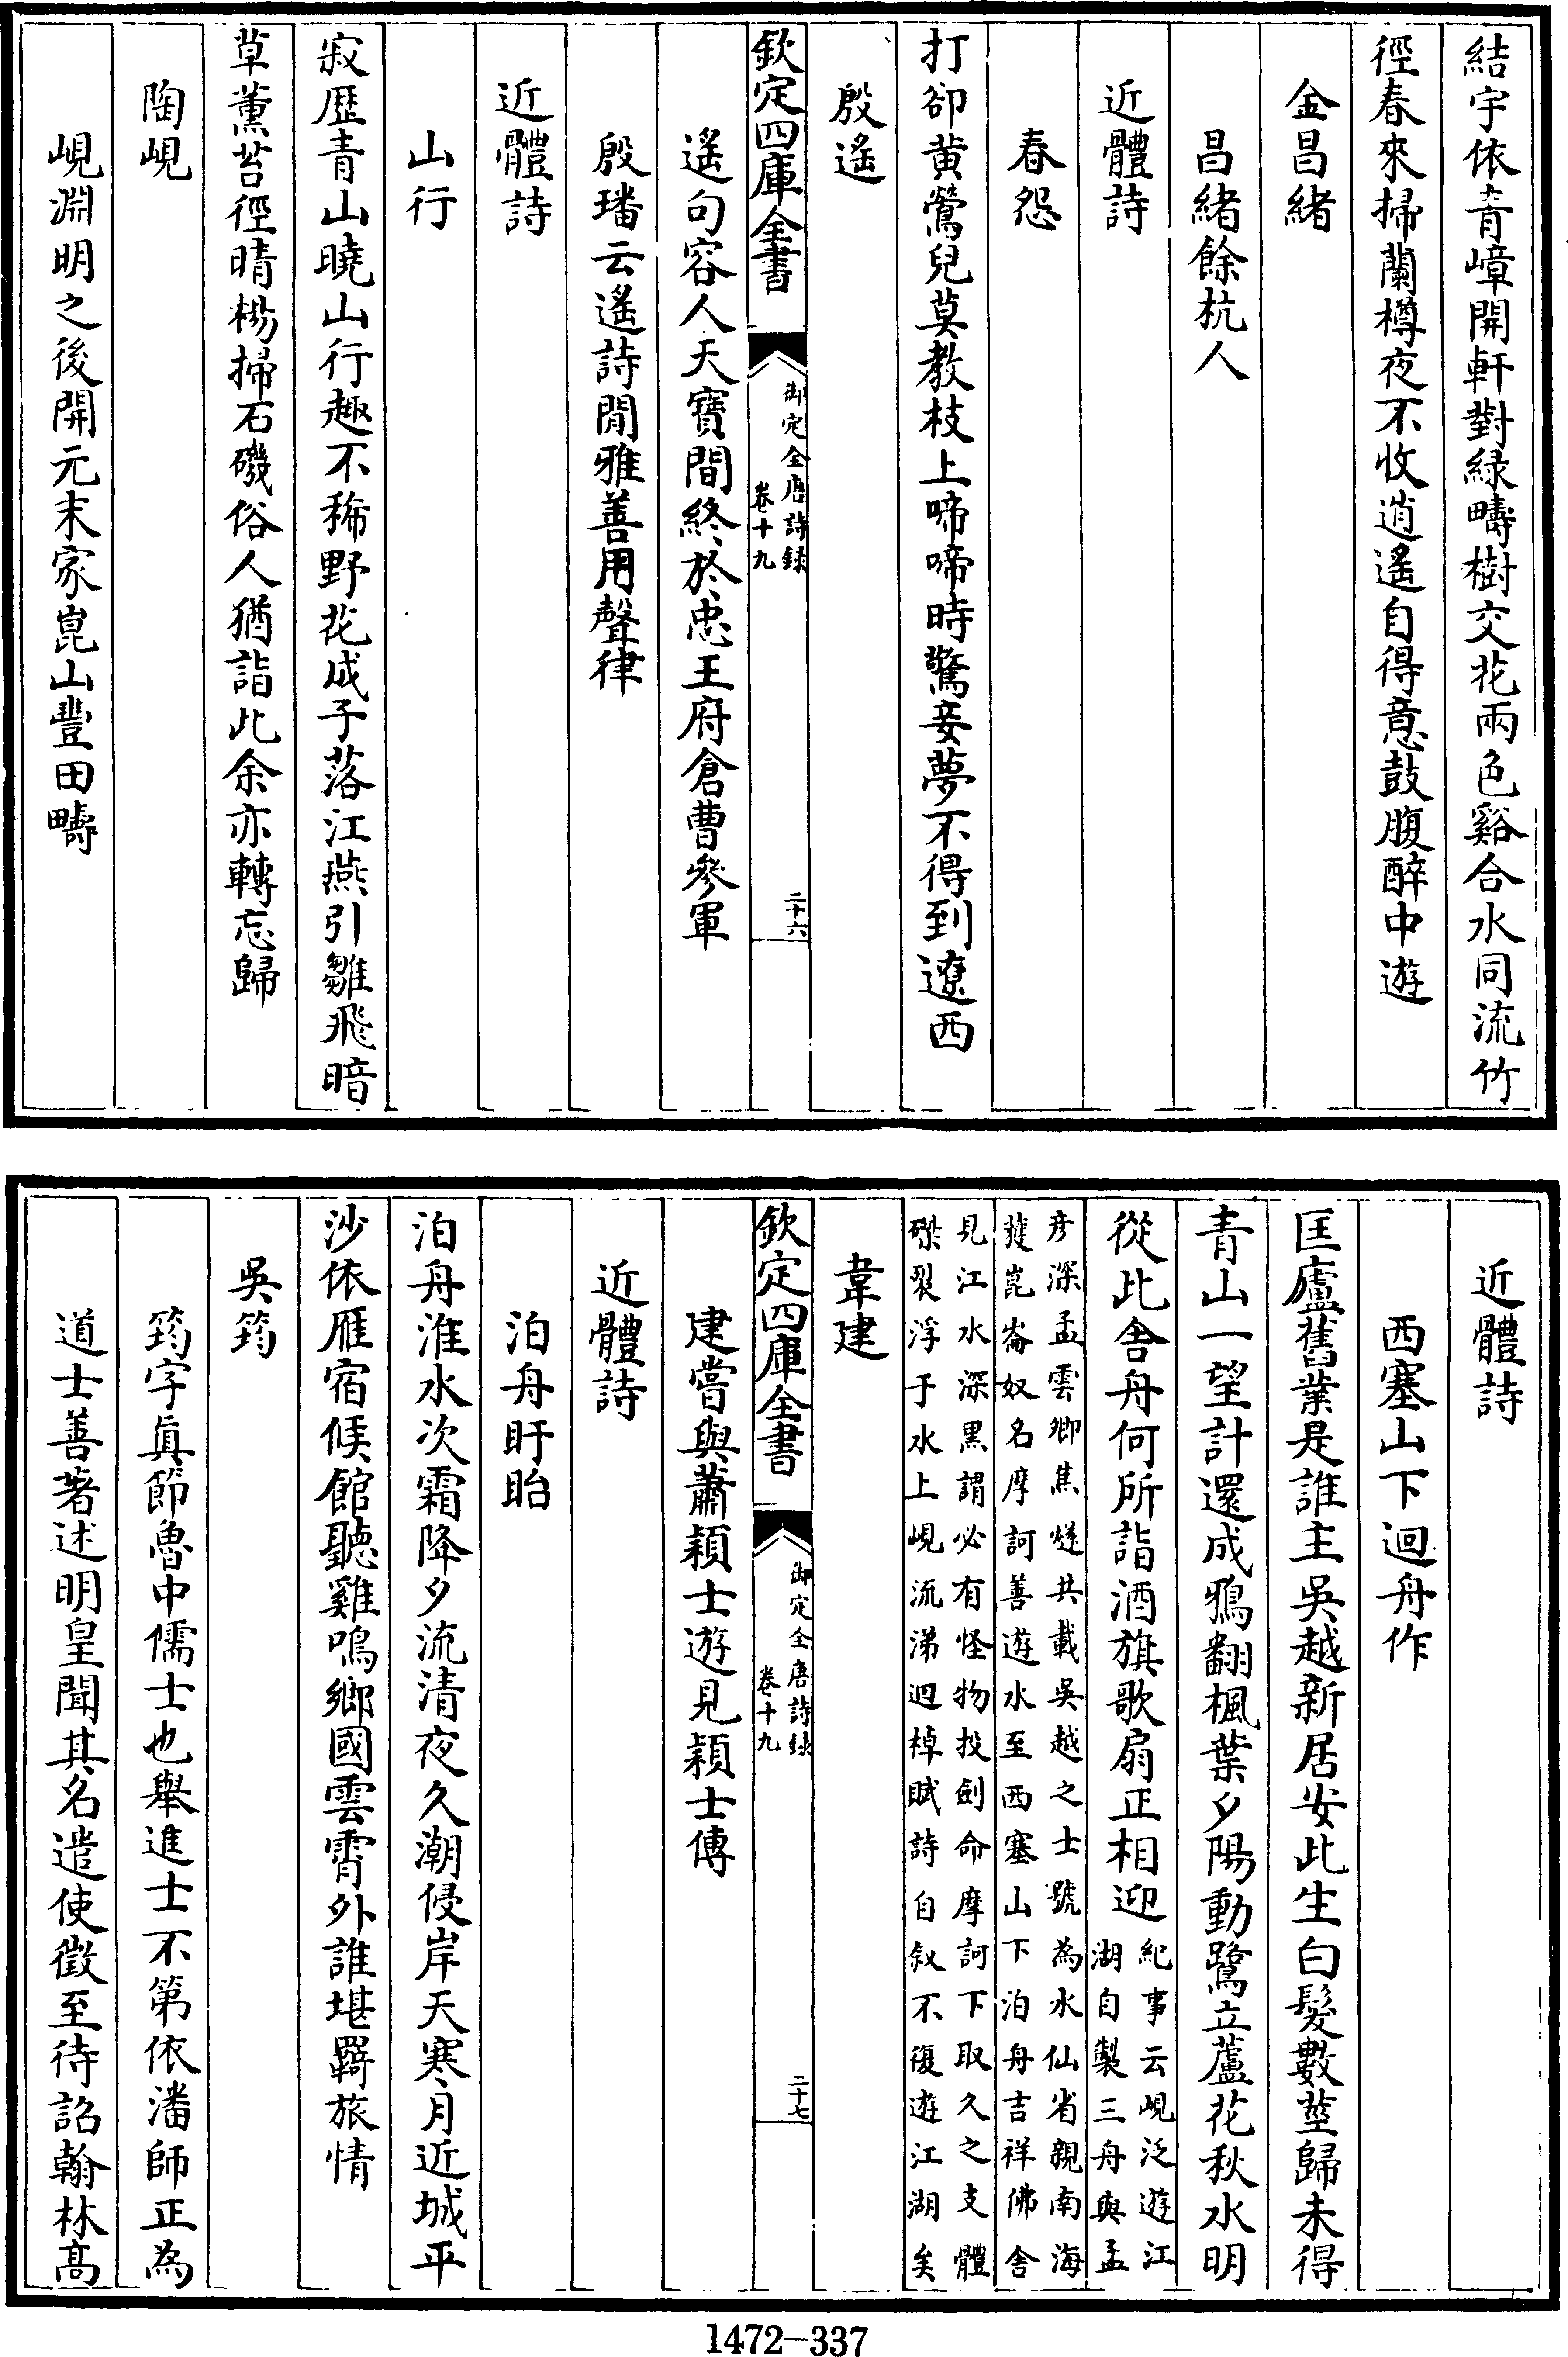 結宇依青嶂開軒對緑疇樹交花兩色谿合水同流竹
徑春來掃蘭樽夜不收逍遙自得意鼓腹醉中遊
金昌緒
昌緒餘杭人
近體詩
春怨
打卻黄鶯兒莫教枝上啼啼時驚妾夢不得到遼西
殷遙
欽定四庫全書
御定全唐詩録
卷十九
二十六
遙句容人天寶間終於忠王府倉曹參軍
殷璠云遙詩閒雅善用聲律
近體詩
山行
寂歴青山曉山行趣不稀野花成子落江燕引雛飛暗
草薰苔徑晴楊掃石磯俗人猶詣此余亦轉忘歸
陶峴
峴淵明之後開元末家崑山豐田疇
近體詩
西塞山下迴舟作
匡廬舊業是誰主吳越新居安此生白髮數莖歸未得
青山一望計還成鴉翻楓葉夕陽動鷺立蘆花秋水明
從此舍舟何所詣酒旗歌扇正相迎
紀事云峴泛遊江
湖自製三舟與孟
彦深孟雲卿焦燧共載吳越之士號為水仙省親南海
獲崑崙奴名摩訶善遊水至西塞山下泊舟吉祥佛舍
見江水深黒謂必有怪物投劍命摩訶下取久之支體
磔裂浮于水上峴流涕迴棹賦詩自敘不復遊江湖矣
韋建
欽定四庫全書
御定全唐詩録
卷十九
二十七
建嘗與蕭穎士遊見穎士傳
近體詩
泊舟盱眙
泊舟淮水次霜降夕流清夜久潮侵岸天寒月近城平
沙依雁宿候館聽雞鳴鄉國雲霄外誰堪羇旅情
吳筠
筠字真節魯中儒士也舉進士不第依潘師正為
道士善著述明皇聞其名遣使徵至待詔翰林高
1472-337